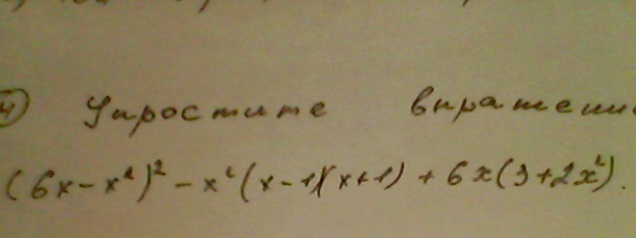 4 Упростите выражени
(6x-x²)²-x²(x-1)(x+1)+6x(3+2x²).